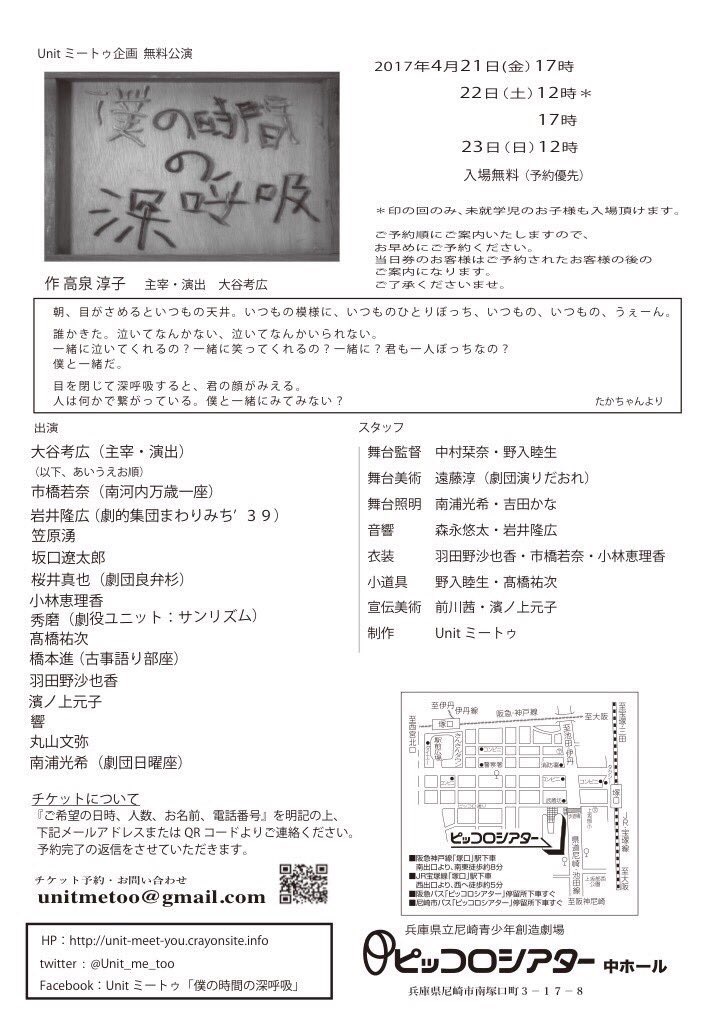 Unit ミートゥ企画 無料公演
僕の時間
の
深呼吸
2017年4月21日(金)17時
22日(土)12時＊
17時
23日(日)12時
入場無料(予約優先)
＊印の回のみ、未就学児のお子様も入場頂けます。
ご予約順にご案内いたしますので、
お早めにご予約ください。
当日券のお客様はご予約されたお客様の後の
ご案内になります。
ご了承くださいませ。
作 高泉 淳子 主宰・演出 大谷考広
朝、目がさめるといつもの天井。いつもの模様に、いつものひとりぼっち、いつもの、いつもの、うぇーん。
誰かきた。泣いてなんかない、泣いてなんかいられない。
一緒に泣いてくれるの？一緒に笑ってくれるの？一緒に？君も一人ぼっちなの？
僕と一緒だ。
目を閉じて深呼吸すると、君の顔がみえる。
人は何かで繋がっている。僕と一緒にみてみない？
たかちゃんより
出演
大谷考広（主宰・演出）
（以下、あいうえお順）
市橋若奈（南河内万歳一座）
岩井隆広（劇的集団まわりみち’３９）
笠原湧
坂口遼太郎
桜井真也（劇団良弁杉）
小林恵理香
秀磨（劇役ユニット：サンリズム）
髙橋祐次
橋本進（古事語り部座）
羽田野沙也香
濱ノ上元子
響
丸山文弥
南浦光希（劇団日曜座）
スタッフ
舞台監督 中村栞奈・野入睦生
舞台美術 遠藤淳（劇団演りだおれ）
舞台照明 南浦光希・吉田かな
音響 森永悠太・岩井隆広
衣装 羽田野沙也香・市橋若奈・小林恵理香
小道具 野入睦生・髙橋祐次
宣伝美術 前川茜・濱ノ上元子
制作 Unit ミートゥ
チケットについて
『ご希望の日時、人数、お名前、電話番号』を明記の上、
下記メールアドレスまたは QR コードよりご連絡ください。
予約完了の返信をさせていただきます。
チケット予約・お問い合わせ
unitmetoo@gmail.com
HP：http://unit-meet-you.crayonsite.info
twitter：@Unit_me_too
Facebook：Unit ミートゥ「僕の時間の深呼吸」
至伊丹
伊丹線
阪急 神戸線
至大阪
至宝塚・三田
至西宮北口
塚口
駅前広場
さんさんタウン
至池田・伊丹
コンビニ
警察署
消防署
コンビニ
コンビニ
コンビニ
塚口
JR宝塚線
ピッコロシアター
県道尼崎池田線
至大阪
至阪神尼崎
■阪急神戸線「塚口」駅下車
南出口より、南東徒歩約8分
■JR宝塚線「塚口」駅下車
西出口より、西へ徒歩約5分
■阪急バス「ピッコロシアター」停留所下車すぐ
■尼崎市バス「ピッコロシアター」停留所下車すぐ
兵庫県立尼崎青少年創造劇場
ピッコロシアター 中ホール
兵庫県尼崎市南塚口町３－１７－８